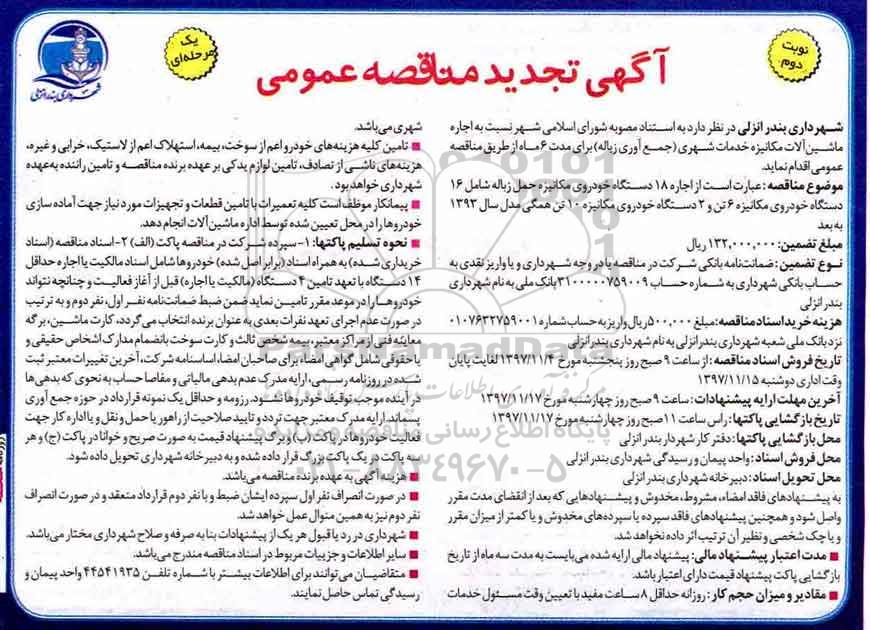 نوبت دوم
آگهی تجدید مناقصه عمومی
یک مرحله‌ای
شهرداری بندر انزلی
شهرداری بندر انزلی در نظر دارد به استناد مصوبه شورای اسلامی شهر نسبت به اجاره
ماشین‌آلات مکانیزه خدمات شهری (جمع آوری زباله) برای مدت ۶ ماه از طریق مناقصه
عمومی اقدام نماید.
موضوع مناقصه: عبارت است از اجاره ۱۸ دستگاه خودروی مکانیزه حمل زباله شامل ۱۶
دستگاه خودروی مکانیزه ۶ تن و ۲ دستگاه خودروی مکانیزه ۱۰ تن همگی مدل سال ۱۳۹۳
به بعد
مبلغ تضمین: ۱۳۲,۰۰۰,۰۰۰ ریال
نوع تضمین: ضمانت‌نامه بانکی شرکت در مناقصه یا در وجه شهرداری و یا واریز نقدی به
حساب بانکی شهرداری به شماره حساب ۳۱۰۰۰۰۰۷۵۹۰۰۹ بانک ملی به نام شهرداری
بندر انزلی
هزینه خرید اسناد مناقصه: مبلغ ۵۰۰,۰۰۰ ریال واریز به حساب شماره ۰۱۰۷۶۳۲۷۵۹۰۰۱
نزد بانک ملی شعبه شهرداری بندر انزلی به نام شهرداری بندر انزلی
تاریخ فروش اسناد مناقصه: از ساعت ۹ صبح روز پنجشنبه مورخ ۱۳۹۷/۱۱/۴ لغایت پایان
وقت اداری دوشنبه ۱۳۹۷/۱۱/۱۵
آخرین مهلت ارایه پیشنهادات: ساعت ۹ صبح روز چهارشنبه مورخ ۱۳۹۷/۱۱/۱۷
تاریخ بازگشایی پاکتها: راس ساعت ۱۱ صبح روز چهارشنبه مورخ ۱۳۹۷/۱۱/۱۷
محل بازگشایی پاکتها: دفتر کار شهردار بندر انزلی
محل فروش اسناد: واحد پیمان و رسیدگی شهرداری بندر انزلی
محل تحویل اسناد: دبیرخانه شهرداری بندر انزلی
به پیشنهادهای فاقد امضاء، مشروط، مخدوش و پیشنهادهایی که بعد از انقضای مدت مقرر
واصل شود و همچنین پیشنهادهای فاقد سپرده یا سپرده‌های مخدوش و یا کمتر از میزان مقرر
و یا چک شخصی و نظیر آن ترتیب اثر داده نخواهد شد.
■ مدت اعتبار پیشنهاد مالی: پیشنهاد مالی ارایه شده می‌بایست به مدت سه ماه از تاریخ
بازگشایی پاکت پیشنهاد قیمت دارای اعتبار باشد.
■ مقادیر و میزان حجم کار: روزانه حداقل ۸ ساعت مفید با تعیین وقت مسئول خدمات
شهری می‌باشد.
■ تامین کلیه هزینه‌های خودرو اعم از سوخت، بیمه، استهلاک اعم از لاستیک، خرابی و غیره،
هزینه‌های ناشی از تصادف، تامین لوازم یدکی بر عهده برنده مناقصه و تامین راننده به‌عهده
شهرداری خواهد بود.
■ پیمانکار موظف است کلیه تعمیرات با تامین قطعات و تجهیزات مورد نیاز جهت آماده سازی
خودروها را در محل تعیین شده توسط اداره ماشین‌آلات انجام دهد.
■ نحوه تسلیم پاکتها: ۱-سپرده شرکت در مناقصه پاکت (الف) ۲-اسناد مناقصه (اسناد
خریداری شده) به همراه اسناد (برابر اصل شده) خودروها شامل اسناد مالکیت یا اجاره حداقل
۱۴ دستگاه با تعهد تامین ۴ دستگاه (مالکیت یا اجاره) قبل از آغاز فعالیت و چنانچه نتواند
خودروها را در موعد مقرر تامین نماید ضمن ضبط ضمانت‌نامه نفر اول، نفر دوم و به ترتیب
در صورت عدم اجرای تعهد نفرات بعدی به عنوان برنده انتخاب می‌گردد، کارت ماشین، برگه
معاینه فنی از مراکز معتبر، بیمه شخص ثالث و کارت سوخت بانضمام مدارک اشخاص حقیقی و
یا حقوقی شامل گواهی امضاء برای صاحبان امضا، اساسنامه شرکت، آخرین تغییرات معتبر ثبت
شده در روزنامه رسمی، ارایه مدرک عدم بدهی مالیاتی و مفاصا حساب به نحوی که بدهی‌ها
در آینده موجب توقیف خودروها نشود. رزومه و حداقل یک نمونه قرارداد در حوزه جمع آوری
پسماند، ارایه مدرک معتبر جهت تردد و تایید صلاحیت از راهور یا حمل و نقل و یا اداره کار جهت
فعالیت خودروها در پاکت (ب) و برگ پیشنهاد قیمت به صورت صریح و خوانا در پاکت (ج) و هر
سه پاکت در یک پاکت بزرگ قرار داده شده و به دبیرخانه شهرداری تحویل داده شود.
■ هزینه آگهی به عهده برنده مناقصه می‌باشد.
■ در صورت انصراف نفر اول سپرده ایشان ضبط و با نفر دوم قرارداد منعقد و در صورت انصراف
نفر دوم نیز به همین منوال عمل خواهد شد.
■ شهرداری در رد یا قبول هر یک از پیشنهادات بنا به صرفه و صلاح شهرداری مختار می‌باشد.
■ سایر اطلاعات و جزییات مربوط در اسناد مناقصه مندرج می‌باشد.
■ متقاضیان می‌توانند برای اطلاعات بیشتر با شماره تلفن ۴۴۵۴۱۹۳۵ واحد پیمان و
رسیدگی تماس حاصل نمایند.
ParsNamadData
پایگاه اطلاع رسانی مناقصه و مزایده
۰۲۱-۸۸۳۴۹۶۷۰-۵